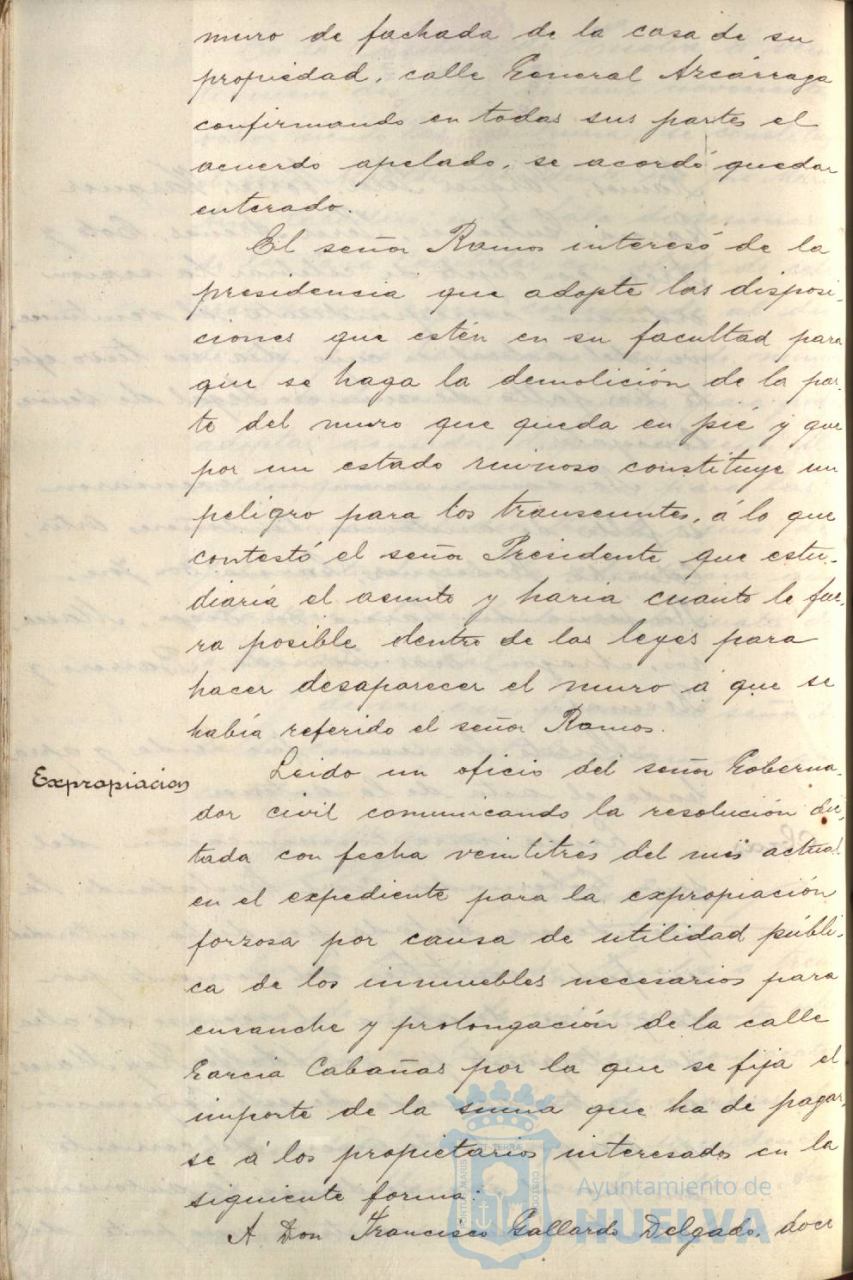 muro de fachada de la casa de su
propiedad, calle General Azcárraga
confirmando en todas sus partes el
acuerdo apelado, se acordó quedar
enterado.
El señor Ramos interesó de la
presidencia que adopte las disposi-
ciones que estén en su facultad para
que se haga la demolición de la par-
te del muro que queda en pié y que
por un estado ruinoso constituye un
peligro para los transeuntes, á lo que
contestó el señor Presidente que estu-
diaría el asunto y haria cuanto le fue-
ra posible dentro de las leyes para
hacer desaparecer el muro á que se
había referido el señor Ramos.
Expropiacion
Leido un oficio del señor Goberna-
dor civil comunicando la resolución dic-
tada con fecha veintitrés del mes actual
en el expediente para la expropiación
forzosa por causa de utilidad públi-
ca de los inmuebles necesarios para
ensanche y prolongación de la calle
Garcia Cabañas por la que se fija el
importe de la suma que ha de pagar-
se á los propietarios interesados en la
siguiente forma:
A Don Francisco Gallardo Delgado, doce
Ayuntamiento de
HUELVA